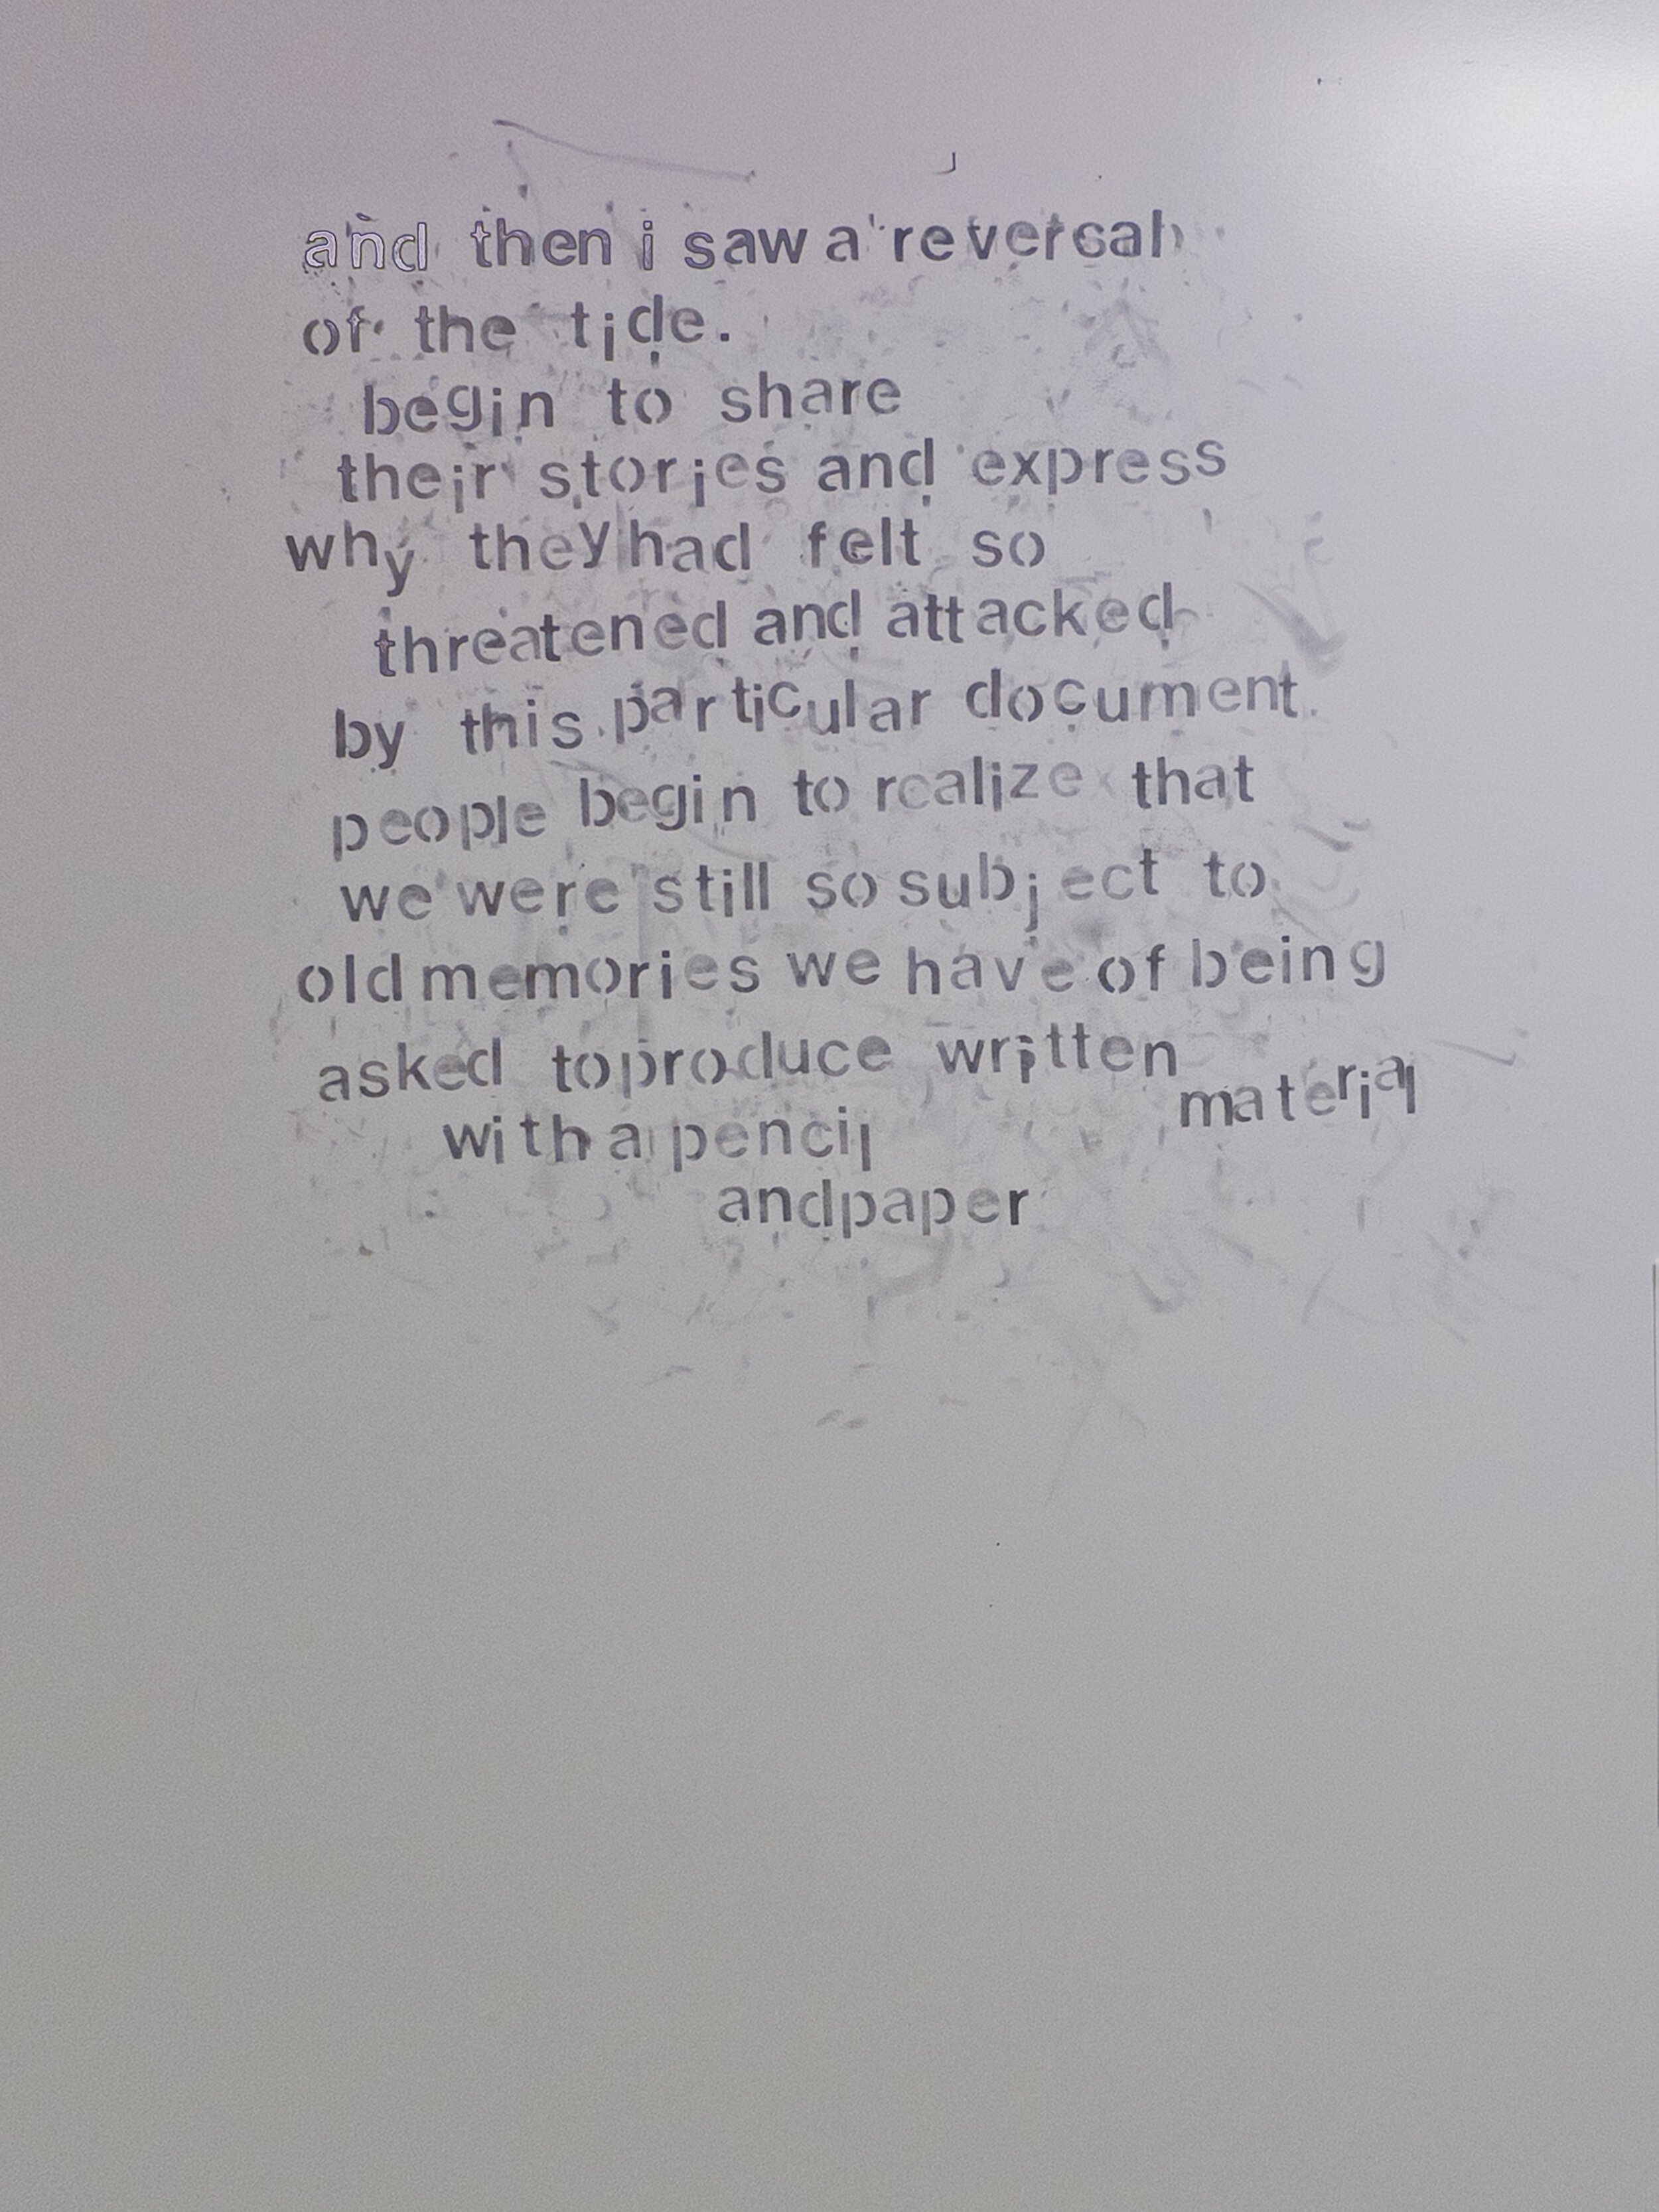 and then i saw a reversal
of the tide.
begin to share
their stories and express
why they had felt so
threatened and attacked
by this particular document.
people begin to realize that
we were still so subject to
old memories we have of being
asked to produce written
material
with a pencil
and paper